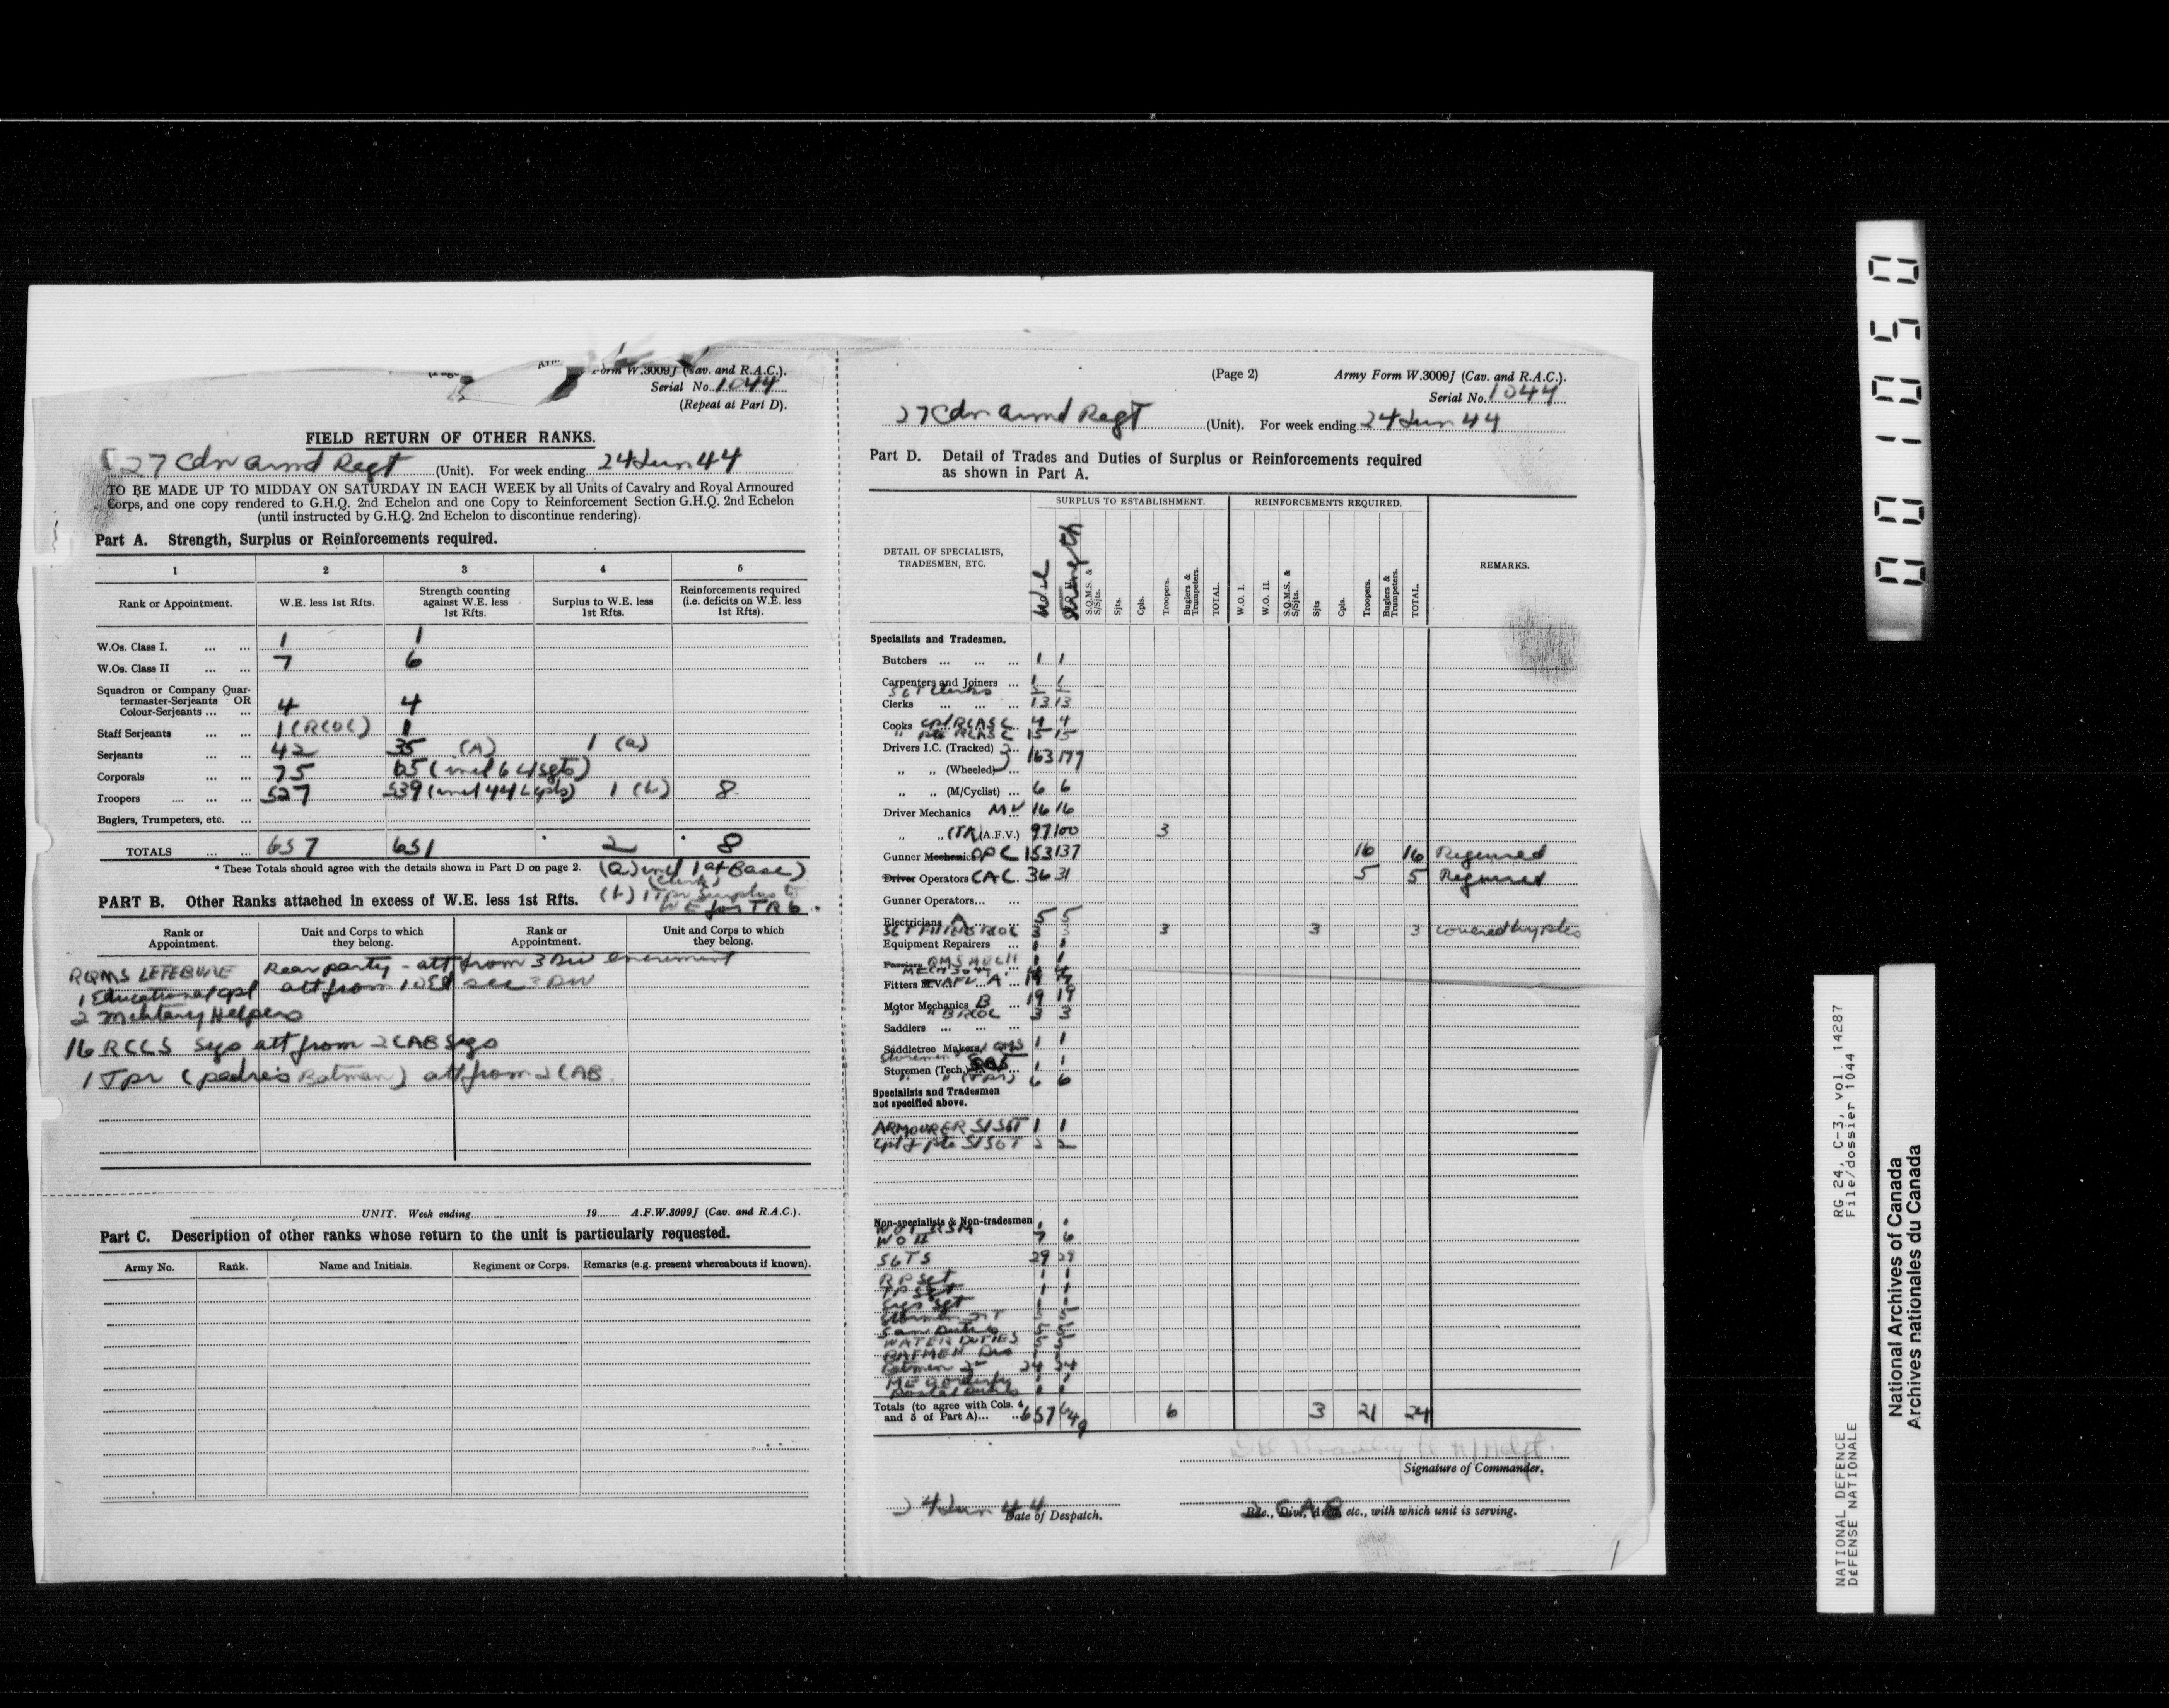 Form W.3009J (Cav. and R.A.C.).
Serial No. 1044
(Repeat at Part D).
FIELD RETURN OF OTHER RANKS.
27 Cdn Armd Regt (Unit). For week ending 24 Jun 44
TO BE MADE UP TO MIDDAY ON SATURDAY IN EACH WEEK by all Units of Cavalry and Royal Armoured
Corps, and one copy rendered to G.H.Q. 2nd Echelon and one Copy to Reinforcement Section G.H.Q. 2nd Echelon
(until instructed by G.H.Q. 2nd Echelon to discontinue rendering).
Part A. Strength, Surplus or Reinforcements required.
1 2 3 4 5
Rank or Appointment. W.E. less 1st Rfts. Strength counting against W.E. less 1st Rfts. Surplus to W.E. less 1st Rfts. Reinforcements required (i.e. deficits on W.E. less 1st Rfts).
W.Os. Class I. ... ... 1 1
W.Os. Class II ... ... 7 6
Squadron or Company Quar-
termaster-Serjeants OR
Colour-Serjeants ... ... 4 4
Staff Serjeants ... ... 1 (RCOC) 1
Serjeants ... ... 42 35 (A) 1 (a)
Corporals ... ... 75 65 (incl 6 L/Sgts)
Troopers ... ... ... 527 539 (incl 44 L/Cpls) 1 (b) 8
Buglers, Trumpeters, etc. ...
TOTALS ... ... 657 651 2 8
* These Totals should agree with the details shown in Part D on page 2. (a) incl 1 at Base)
(Clerk)
(b) 1 Tpr Surplus to
WE for TR 6.
PART B. Other Ranks attached in excess of W.E. less 1st Rfts.
Rank or Appointment. Unit and Corps to which they belong. Rank or Appointment. Unit and Corps to which they belong.
RQMS LEFEBVRE Rear party - att from 3 Div
1 Educational Cpl att from sec 3 Div
2 Military Helpers
16 RCCS Sigs att from 2 CAB Sigs
1 Tpr (padre's Batman) att from 2 CAB
UNIT. Week ending 19 A.F.W.3009J (Cav. and R.A.C.).
Part C. Description of other ranks whose return to the unit is particularly requested.
Army No. Rank. Name and Initials. Regiment or Corps. Remarks (e.g. present whereabouts if known).
(Page 2) Army Form W.3009J (Cav. and R.A.C.).
Serial No. 1044
27 Cdn Armd Regt (Unit). For week ending 24 Jun 44
Part D. Detail of Trades and Duties of Surplus or Reinforcements required
as shown in Part A.
SURPLUS TO ESTABLISHMENT. REINFORCEMENTS REQUIRED.
DETAIL OF SPECIALISTS, TRADESMEN, ETC. Strength S.Q.M.S. & S/Sjts. Sjts. Cpls. Troopers. Buglers & Trumpeters. TOTAL. W.O. I. W.O. II. S.Q.M.S. & S/Sjts. Sjts Cpls. Troopers. Buglers & Trumpeters. TOTAL. REMARKS.
Specialists and Tradesmen.
Butchers ... ... ... 1 1
Carpenters and Joiners ... 1 1
Sgt Clerks
Clerks ... ... ... 13 13
Cooks Cpl RCASC 4 4
" Pte RCASC 15 15
Drivers I.C. (Tracked) 163 177
" " (Wheeled) ...
" " (M/Cyclist) ... 6 6
Driver Mechanics MV 16 16
" " (TK) (A.F.V.) 97 100 3
Gunner Mechanics OPC 153 137 16 16 Required
Driver Operators CAC 36 31 5 5 Required
Gunner Operators... ...
Electricians A 5 5
Sgt Fitters RCOC 3 3 3 3 3
Equipment Repairers ... 1 1
Farriers QMS MECH 1 1
Fitters MV AFV A
Motor Mechanics B ... 19 19
" " B RCOC 3 3
Saddlers ... ... ...
Saddletree Makers QMS 1 1
Storemen (Tech.) Sgt 1 1
" " (Tpr) 6 6
Specialists and Tradesmen
not specified above.
ARMOURER S/SGT 1 1
Cpl & Pte S/SGT 2 2
Non-specialists & Non-tradesmen
WO I RSM 1 1
WO II 7 6
SGTS 29 29
RP Sgt 1 1
TP Sgt 1 1
Sigs Sgt 1 1
San Duties
WATER DUTIES 5 5
BATMEN Dvr
Batmen 24 24
MED Orderly 1 1
Postal Duties 1 1
Totals (to agree with Cols. 4
and 5 of Part A)... ... 657 649 6 3 21 24
Signature of Commander.
24 Jun 44 2 CAB
Date of Despatch. Bde., Div., Area, etc., with which unit is serving.
1
001050
RG 24, C-3, vol. 14287
File/dossier 1044
NATIONAL DEFENCE
DÉFENSE NATIONALE
National Archives of Canada
Archives nationales du Canada